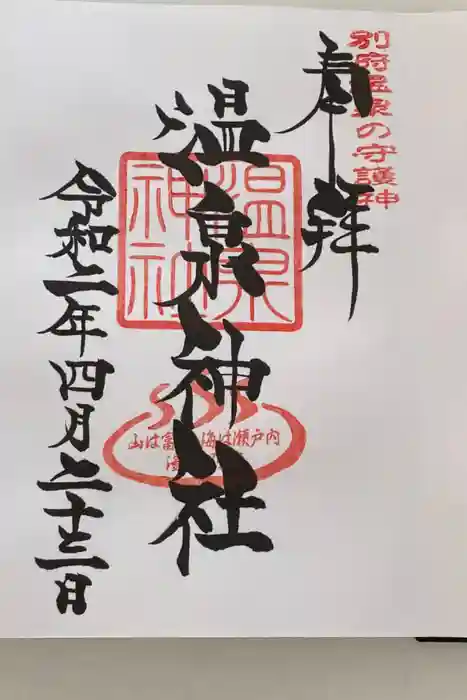 別府温泉の守護神
奉拝
温泉神社
温泉神社
山は富 海は瀬戸内
湯
令和二年四月二十三日